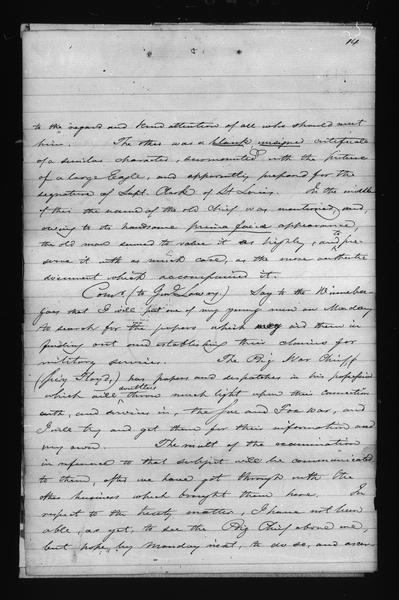 14
to the regard and kind attention of all who should meet
him. The other was a blank, unsigned certificate
of a similar character, surmounted with the picture
of a large Eagle, and apparently prepared for the
signature of Supt. Clark of St Louis. In the middle
of this the name of the old Chief was mentioned, and,
owing to its handsome prima facie appearance,
the old man seemed to value it as highly, and to pre-
serve it with as much care, as the more authentic
document which accompanied it.
Comr. (to Lowry.) Say to the Winneba-
goes that I will put one of my young men on Monday
to search for the papers which may aid them in
finding out and establishing their claims for
military services. The Big War Chief
has papers and despatches in his profession
which will doubtless throw much light upon their connection
with, and services in, the Sac and Fox war, and
I will try and get them for their information and
my own. The result of the examination
in reference to that subject will be communicated
to them, after we have got through with the
other business which brought them here. In
respect to the treaty matter, I have not been
able, as yet, to see the Big Chief above me,
but hope, by Monday next, to do so, and ascer-